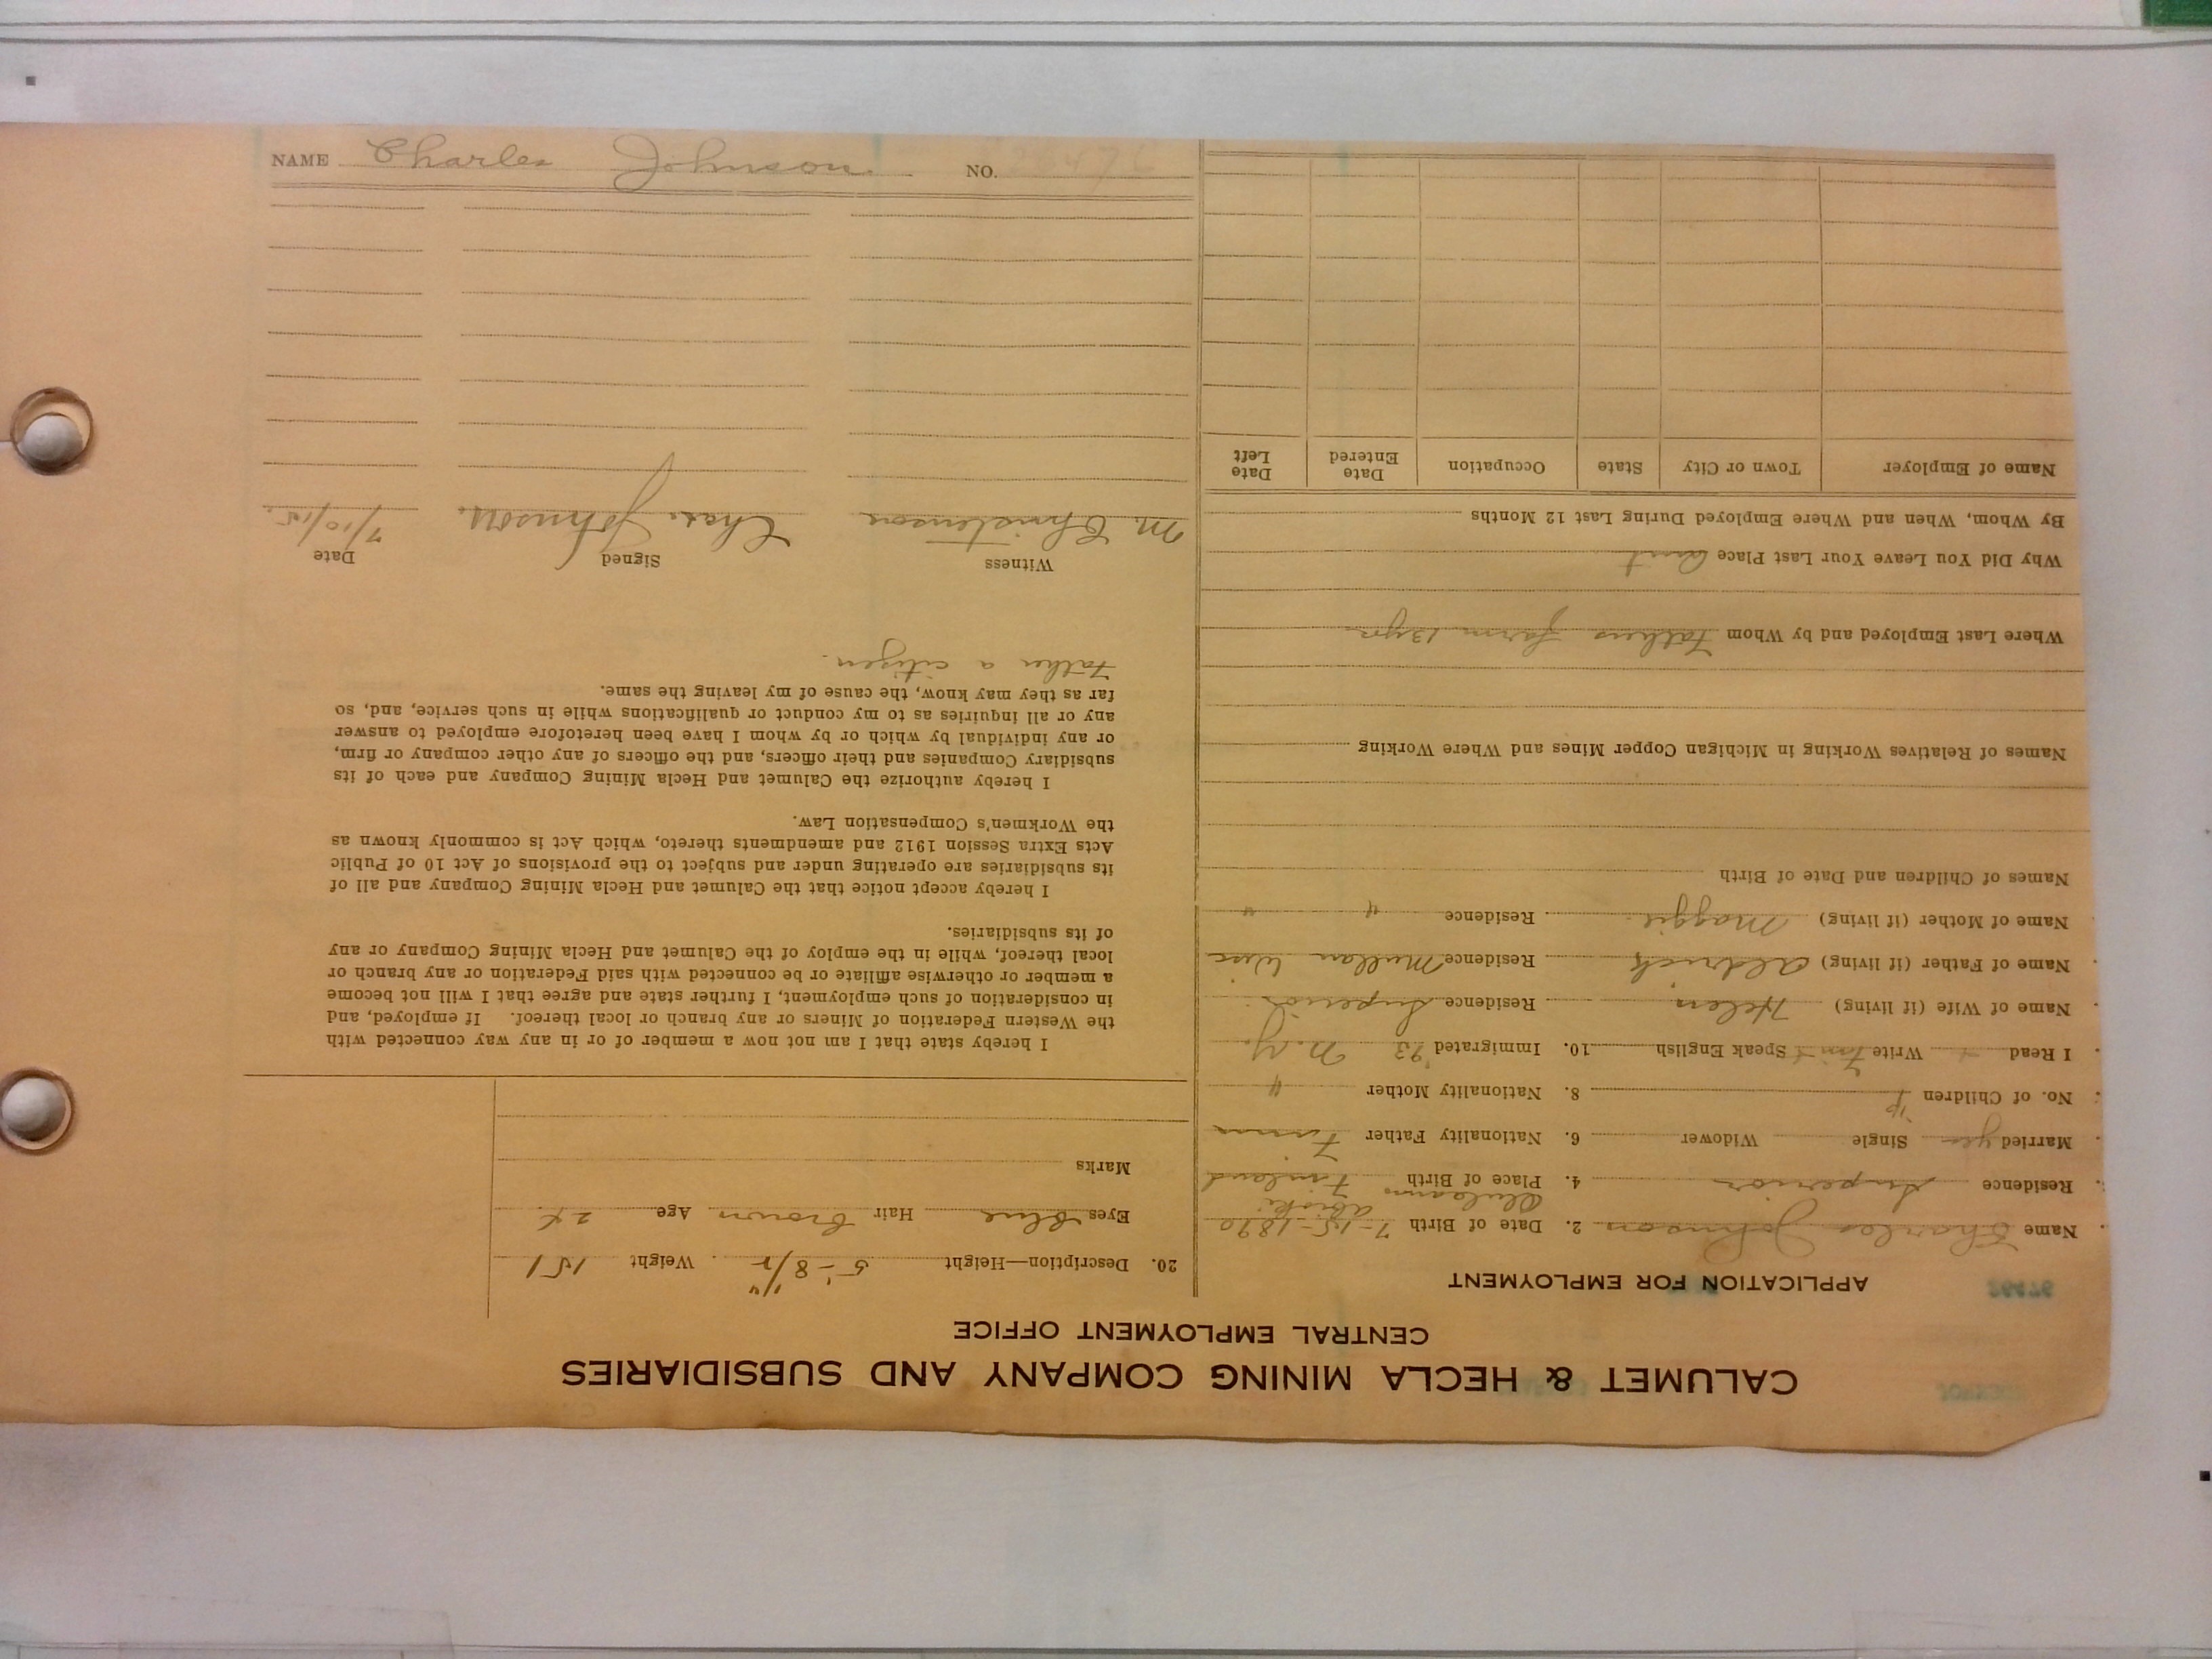 CALUMET & HECLA MINING COMPANY AND SUBSIDIARIES
CENTRAL EMPLOYMENT OFFICE
APPLICATION FOR EMPLOYMENT
Name Charles Johnson 2. Date of Birth 7-15-1890
Residence Superior 4. Place of Birth Finland
Married yes Single Widower 6. Nationality Father Finn
No. of Children 8. Nationality Mother "
I Read Write Speak English 10. Immigrated '93 N.Y.
Name of Wife (if living) Helen Residence Superior
Name of Father (if living) Aldrich Residence Wisc
Name of Mother (if living) Maggie Residence " "
Names of Children and Date of Birth
Names of Relatives Working in Michigan Copper Mines and Where Working
Where Last Employed and by Whom Fathers farm
Why Did You Leave Your Last Place
By Whom, When and Where Employed During Last 12 Months
Name of Employer Town or City State Occupation Date Entered Date Left
20. Description—Height 5'-8 1/2" Weight 151
Eyes Blue Hair brown Age
Marks
I hereby state that I am not now a member of or in any way connected with
the Western Federation of Miners or any branch or local thereof. If employed, and
in consideration of such employment, I further state and agree that I will not become
a member or otherwise affiliate or be connected with said Federation or any branch or
local thereof, while in the employ of the Calumet and Hecla Mining Company or any
of its subsidiaries.
I hereby accept notice that the Calumet and Hecla Mining Company and all of
its subsidiaries are operating under and subject to the provisions of Act 10 of Public
Acts Extra Session 1912 and amendments thereto, which Act is commonly known as
the Workmen's Compensation Law.
I hereby authorize the Calumet and Hecla Mining Company and each of its
subsidiary Companies and their officers, and the officers of any other company or firm,
or any individual by which or by whom I have been heretofore employed to answer
any or all inquiries as to my conduct or qualifications while in such service, and, so
far as they may know, the cause of my leaving the same.
Father a citizen.
Witness Signed Date
M. Christenson Chas. Johnson. 7/10/15.
NAME Charles Johnson. NO.